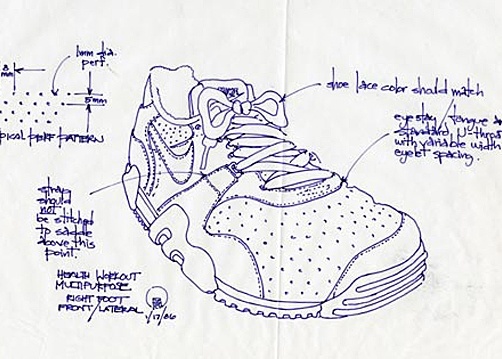 1mm dia.
perf.
3
mm
5mm
PICAL PERF PATTERN
shoe lace color should match
eyestay
standard U-throat
with variable width
eyelet spacing.
strap
should
not
be stitched
to saddle
above this
point.
HEALTH WORKOUT
MULTIPURPOSE
RIGHT FOOT
FRONT/LATERAL
1/17/86